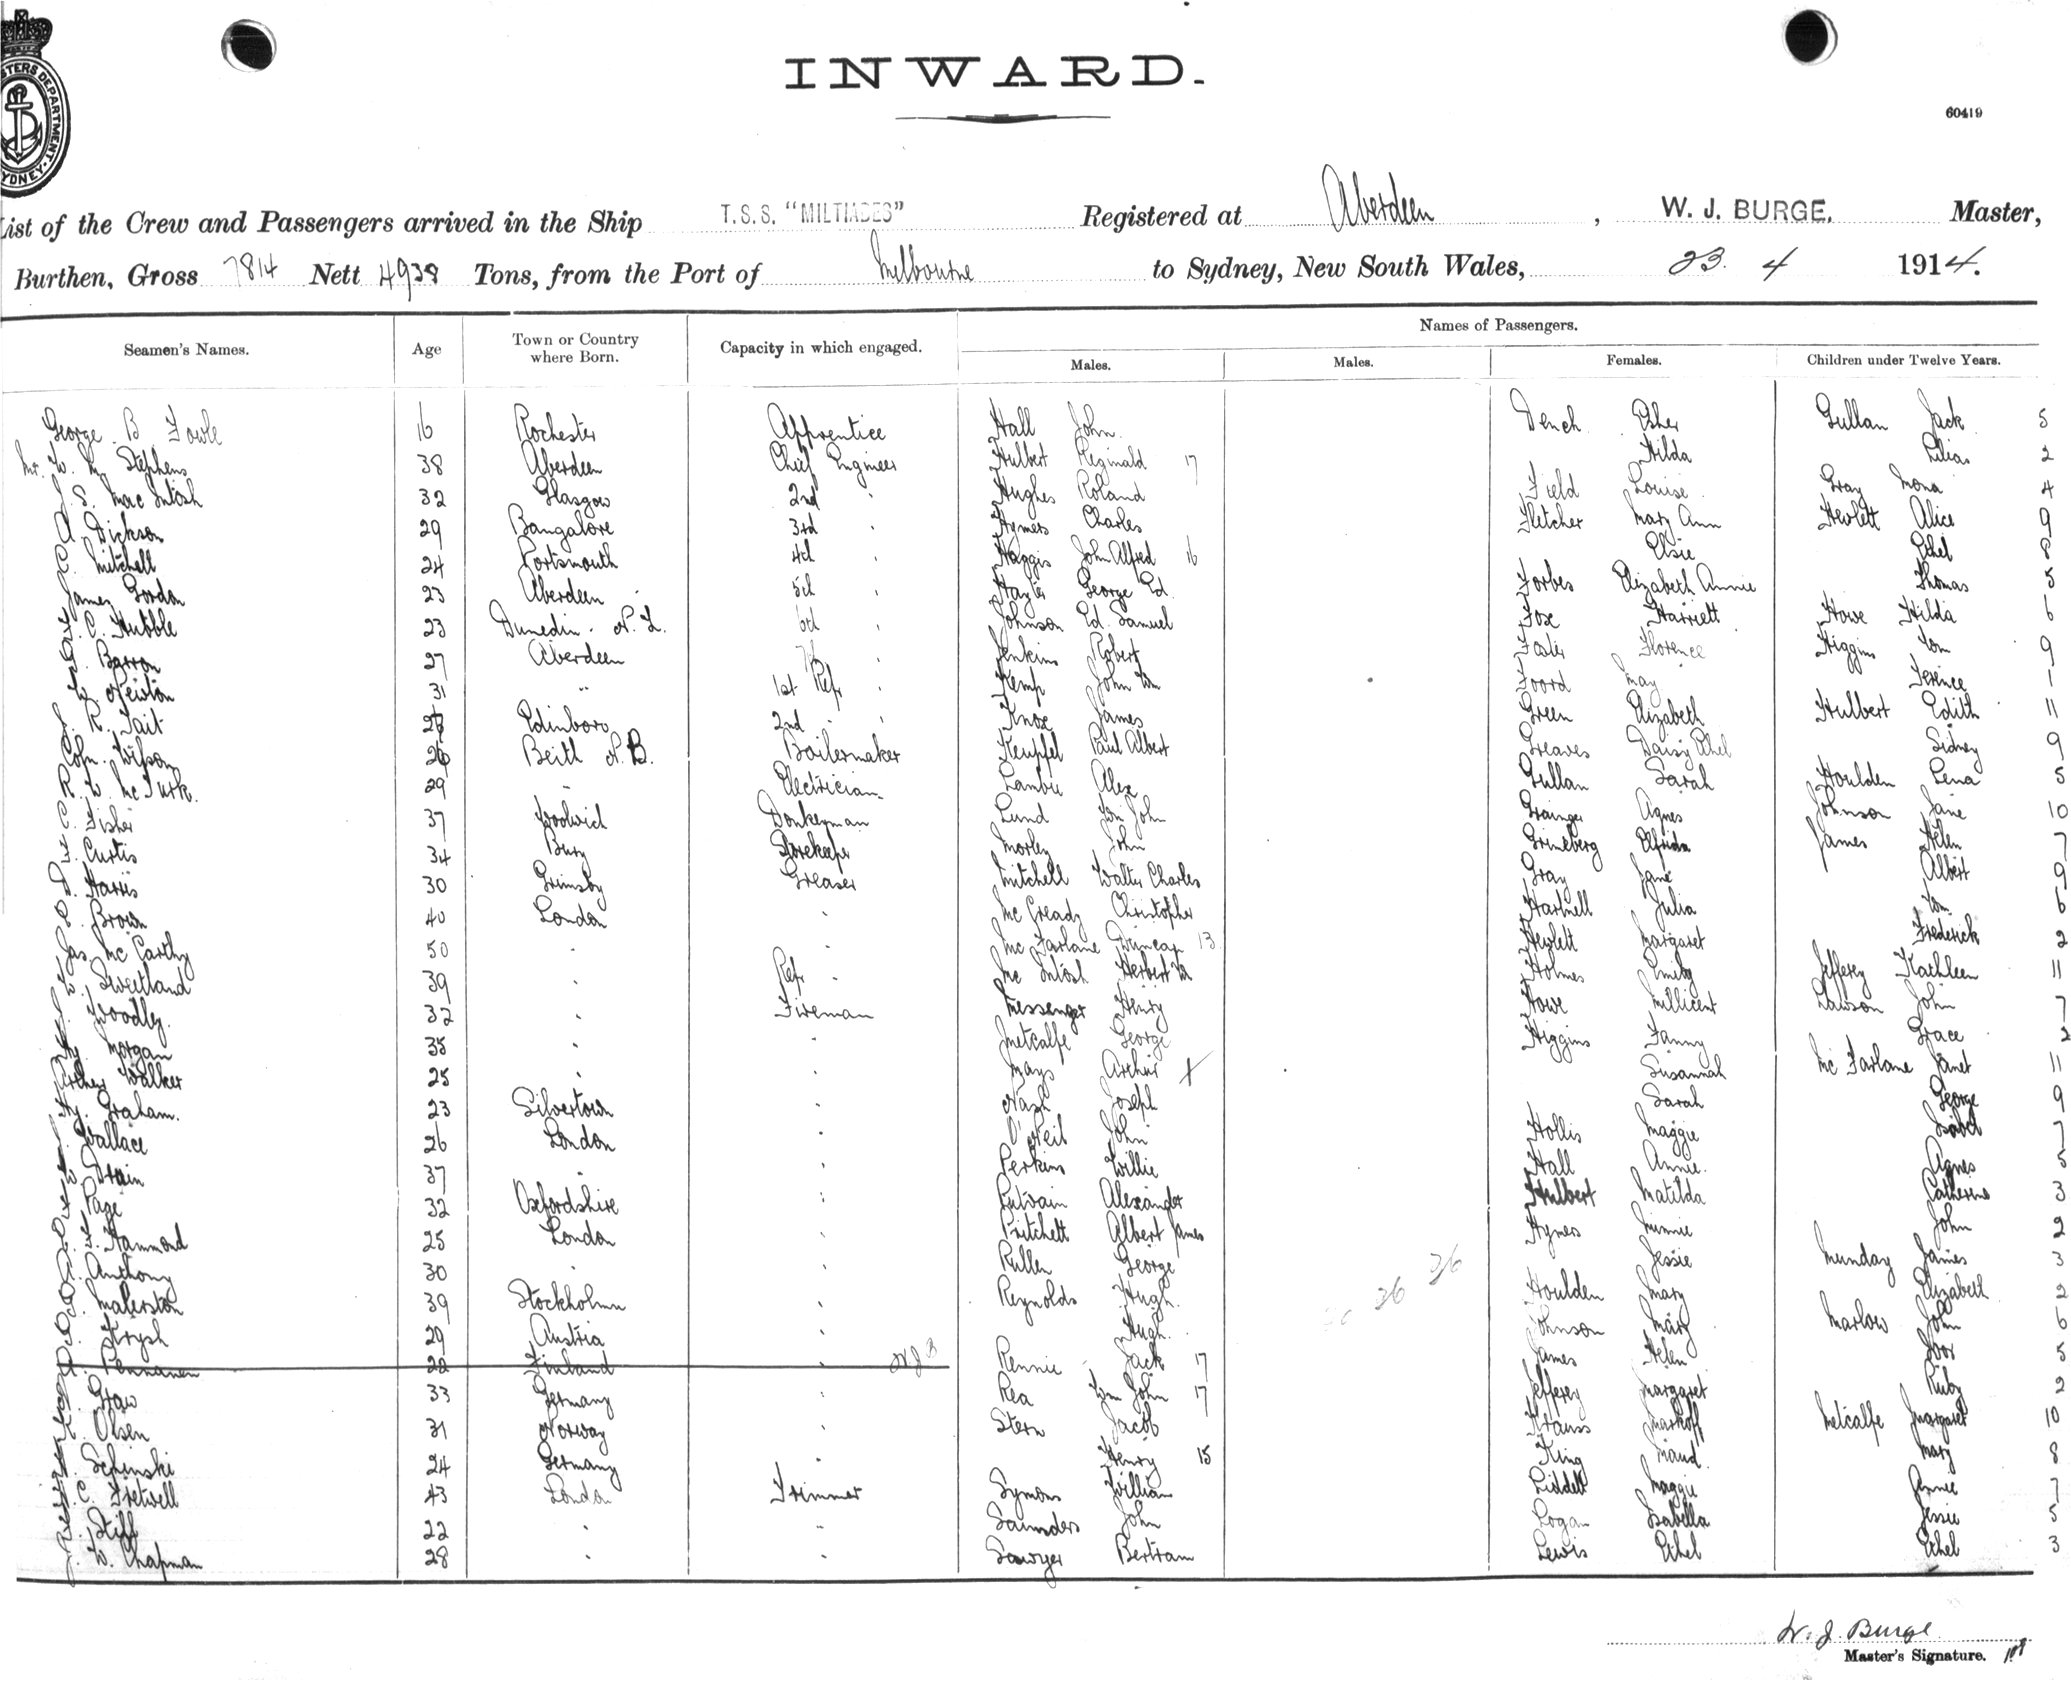 INWARD.
60419
MASTERS DEPARTMENT SYDNEY
List of the Crew and Passengers arrived in the Ship T.S.S. "MILTIADES" Registered at Aberdeen, W. J. BURGE, Master,
Burthen, Gross 7814 Nett 4938 Tons, from the Port of Melbourne to Sydney, New South Wales, 23. 4 1914.
Names of Passengers.
Seamen's Names. Age Town or Country where Born. Capacity in which engaged. Males. Males. Females. Children under Twelve Years.
George B Fowle 16 Rochester Apprentice Hall John Dench Esher Gullan Jack 5
Mr. W. Stephens 38 Aberdeen Chief Engineer Hulbert Reginald 17 Hilda Lilias 2
J. S. Mac Intosh 32 Glasgow 2nd " Hughes Roland Field Louise Gray Mona 4
A Dickson 29 Bangalore 3rd " Hymers Charles Fletcher Mary Ann Hewlett Alice 9
C. Mitchell 24 Portsmouth 4th " Haggis John Alfred 16 Elsie Ethel 8
James Gordon 23 Aberdeen 5th " George Ed. Forbes Elizabeth Annie Thomas 5
C. Hubble 23 Dunedin N. Z. 6th " Johnson Ed. Samuel Fox Harriett Howe Hilda 6
Barron 27 Aberdeen Jenkins Robert Foster Florence Higgins Tom 9
Newton 31 " 1st Refr " Kemp John Wm Foord May Terence 1
R. Tait Edinboro 2nd " " Knox James Green Elizabeth Hulbert Edith 11
Wilson 26 Beith N. B. Boilermaker Keupfel Paul Albert Greaves Daisy Ethel Sidney 9
R. W. McTurk. 29 " Electrician Lambie Alex Gullan Sarah Houlden Lena 5
Fisher 37 Woolwich Donkeyman Lund Wm John Grainger Agnes Johnson Jane 10
Curtis 34 Bury Storekeeper Morley John Grineberg Elfrida James Helen 7
Harris 30 Grimsby Greaser Mitchell Walter Charles Gray Jane Albert 9
Brown 40 London " Mc Cready Christopher Hartnell Julia Tom 6
Jas. Mc Carthy 50 " " Mc Farlane Duncan 13 Hewlett Margaret Frederick 2
Sweetland 39 " Refr " Mc Intosh Herbert Holmes Emily Jeffery Kathleen 11
Woodley. 32 " Fireman Messenger Henry Howe Millicent Lawson John 7
Hy. Morgan 35 " " Metcalfe George Higgins Fanny Grace 2
Arthur Walker 25 " " Mays Arthur X Susannah Mc Farlane Janet 11
Hy. Graham. 23 Silvertown " Nash Joseph Sarah George 9
Wallace 26 London " O'Neil John Hollis Maggie Isabel 7
Drain 37 " " Perkins Willie Hall Annie. Agnes 5
Page 32 Oxfordshire " Alexander Hulbert Matilda Catherine 3
Hammond 25 London " Pritchett Albert James Hynes Minnie John 2
Anthony 30 " " Pullen George Jessie Munday James 3
Malerston 39 Stockholm " Reynolds Hugh. 26 26 Houlden Mary Elizabeth 2
Krysh 29 Austria " Hugh. Johnson Mary Marlow John 6
Pennanen 22 Finland " WJB Rennie Jack 17 James Helen 5
Graw 33 Germany " Rea Wm John 17 Jeffery Margaret Ruby 2
Olsen 31 Norway " Stern Jacob Krauss Markoff Metcalfe Margaret 10
Schinski 24 Germany " Henry 15 King Maud Mary 8
C. Fretwell 43 London Trimmer Symons William Liddell Maggie Annie 7
Stiff 22 " " Saunders John Logan Isabella Jessie 5
W. Chapman 28 " " Sawyer Bertram Lewis Ethel Ethel 3
W. J. Burge
Master's Signature.